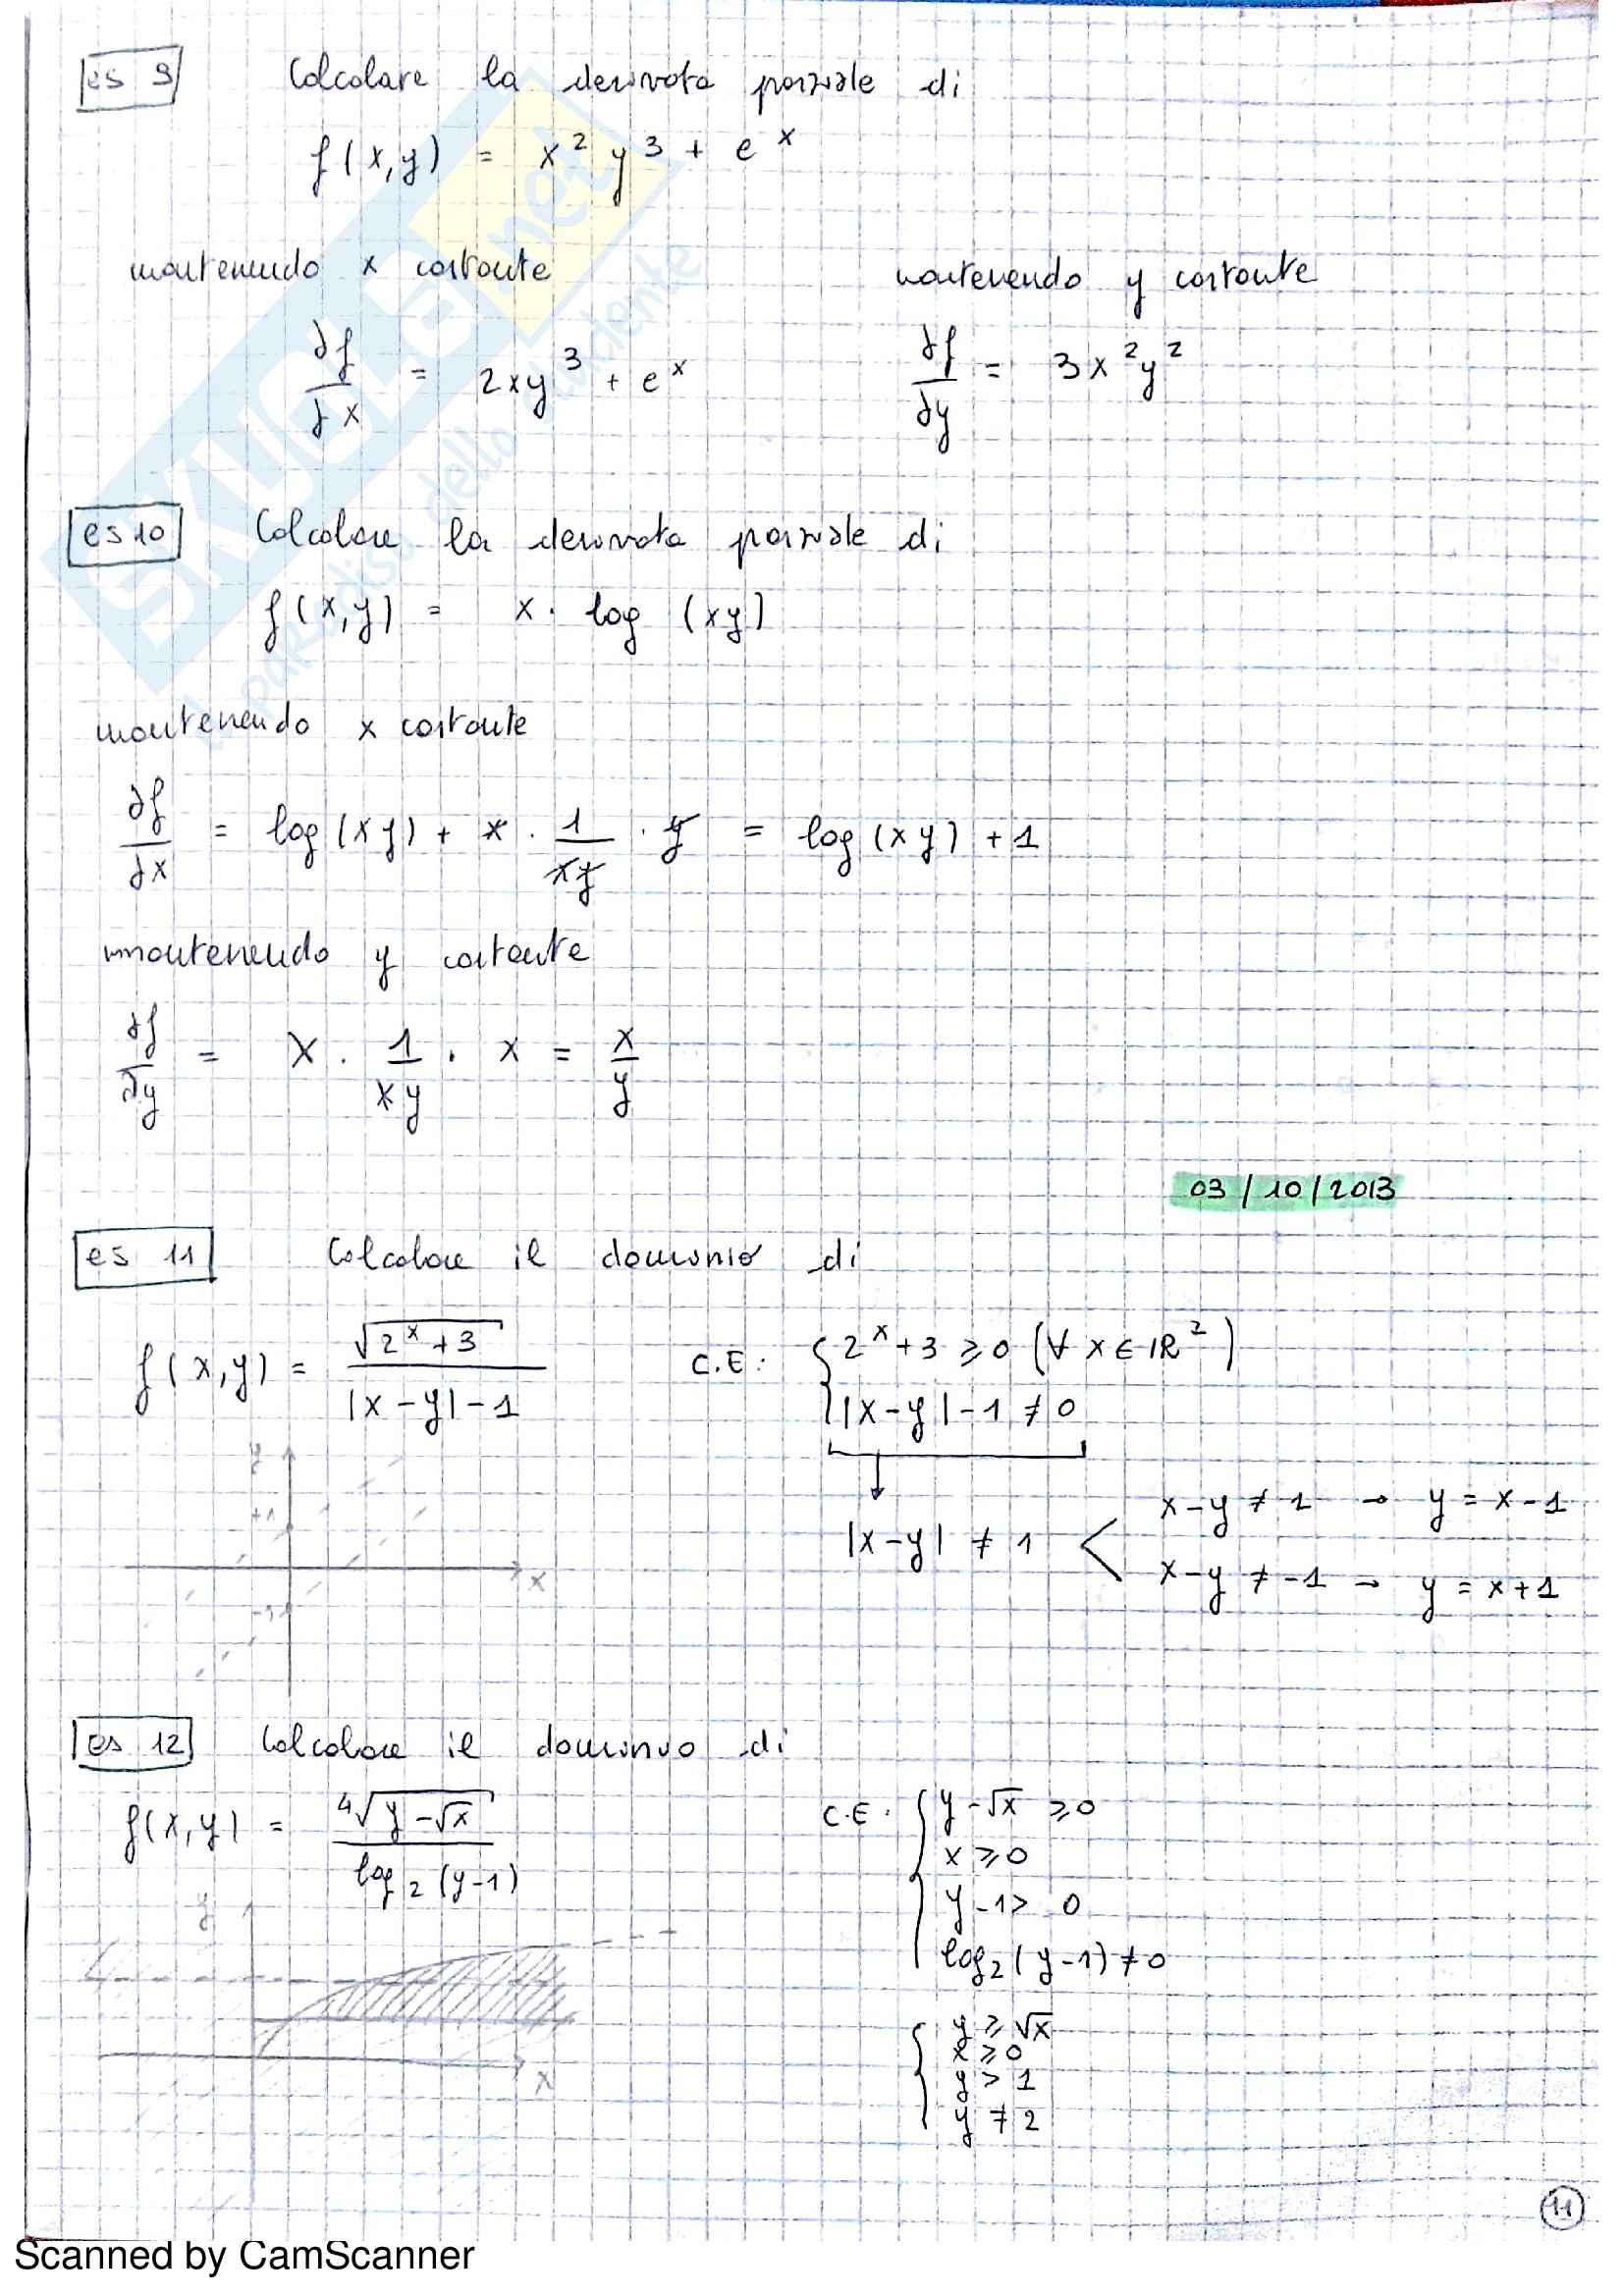 es 9 Calcolare la derivata parziale di
f(x,y) = x² y³ + e^x
mantenendo x costante mantenendo y costante
∂f/∂x = 2xy³ + e^x ∂f/∂y = 3x²y²
es 10 Calcolare la derivata parziale di
f(x,y) = x · log (xy)
mantenendo x costante
∂f/∂x = log(xy) + x · 1/xy · y = log(xy) + 1
mantenendo y costante
∂f/∂y = x · 1/xy · x = x/y
03/10/2013
es 11 Calcolare il dominio di
f(x,y) = √(2^x + 3) / (|x-y| - 1) C.E: { 2^x + 3 ≥ 0 (∀ x ∈ IR²)
|x-y| - 1 ≠ 0
y
+1
x
-1
|x-y| ≠ 1 < x-y ≠ 1 → y = x-1
x-y ≠ -1 → y = x+1
es 12 Calcolare il dominio di
f(x,y) = ⁴√(y - √x) / log₂(y-1) C.E. { y - √x ≥ 0
x ≥ 0
y - 1 > 0
log₂(y-1) ≠ 0
y
x
{ y ≥ √x
x ≥ 0
y > 1
y ≠ 2
11
SKUOLA.net
il paradiso dello studente
Scanned by CamScanner